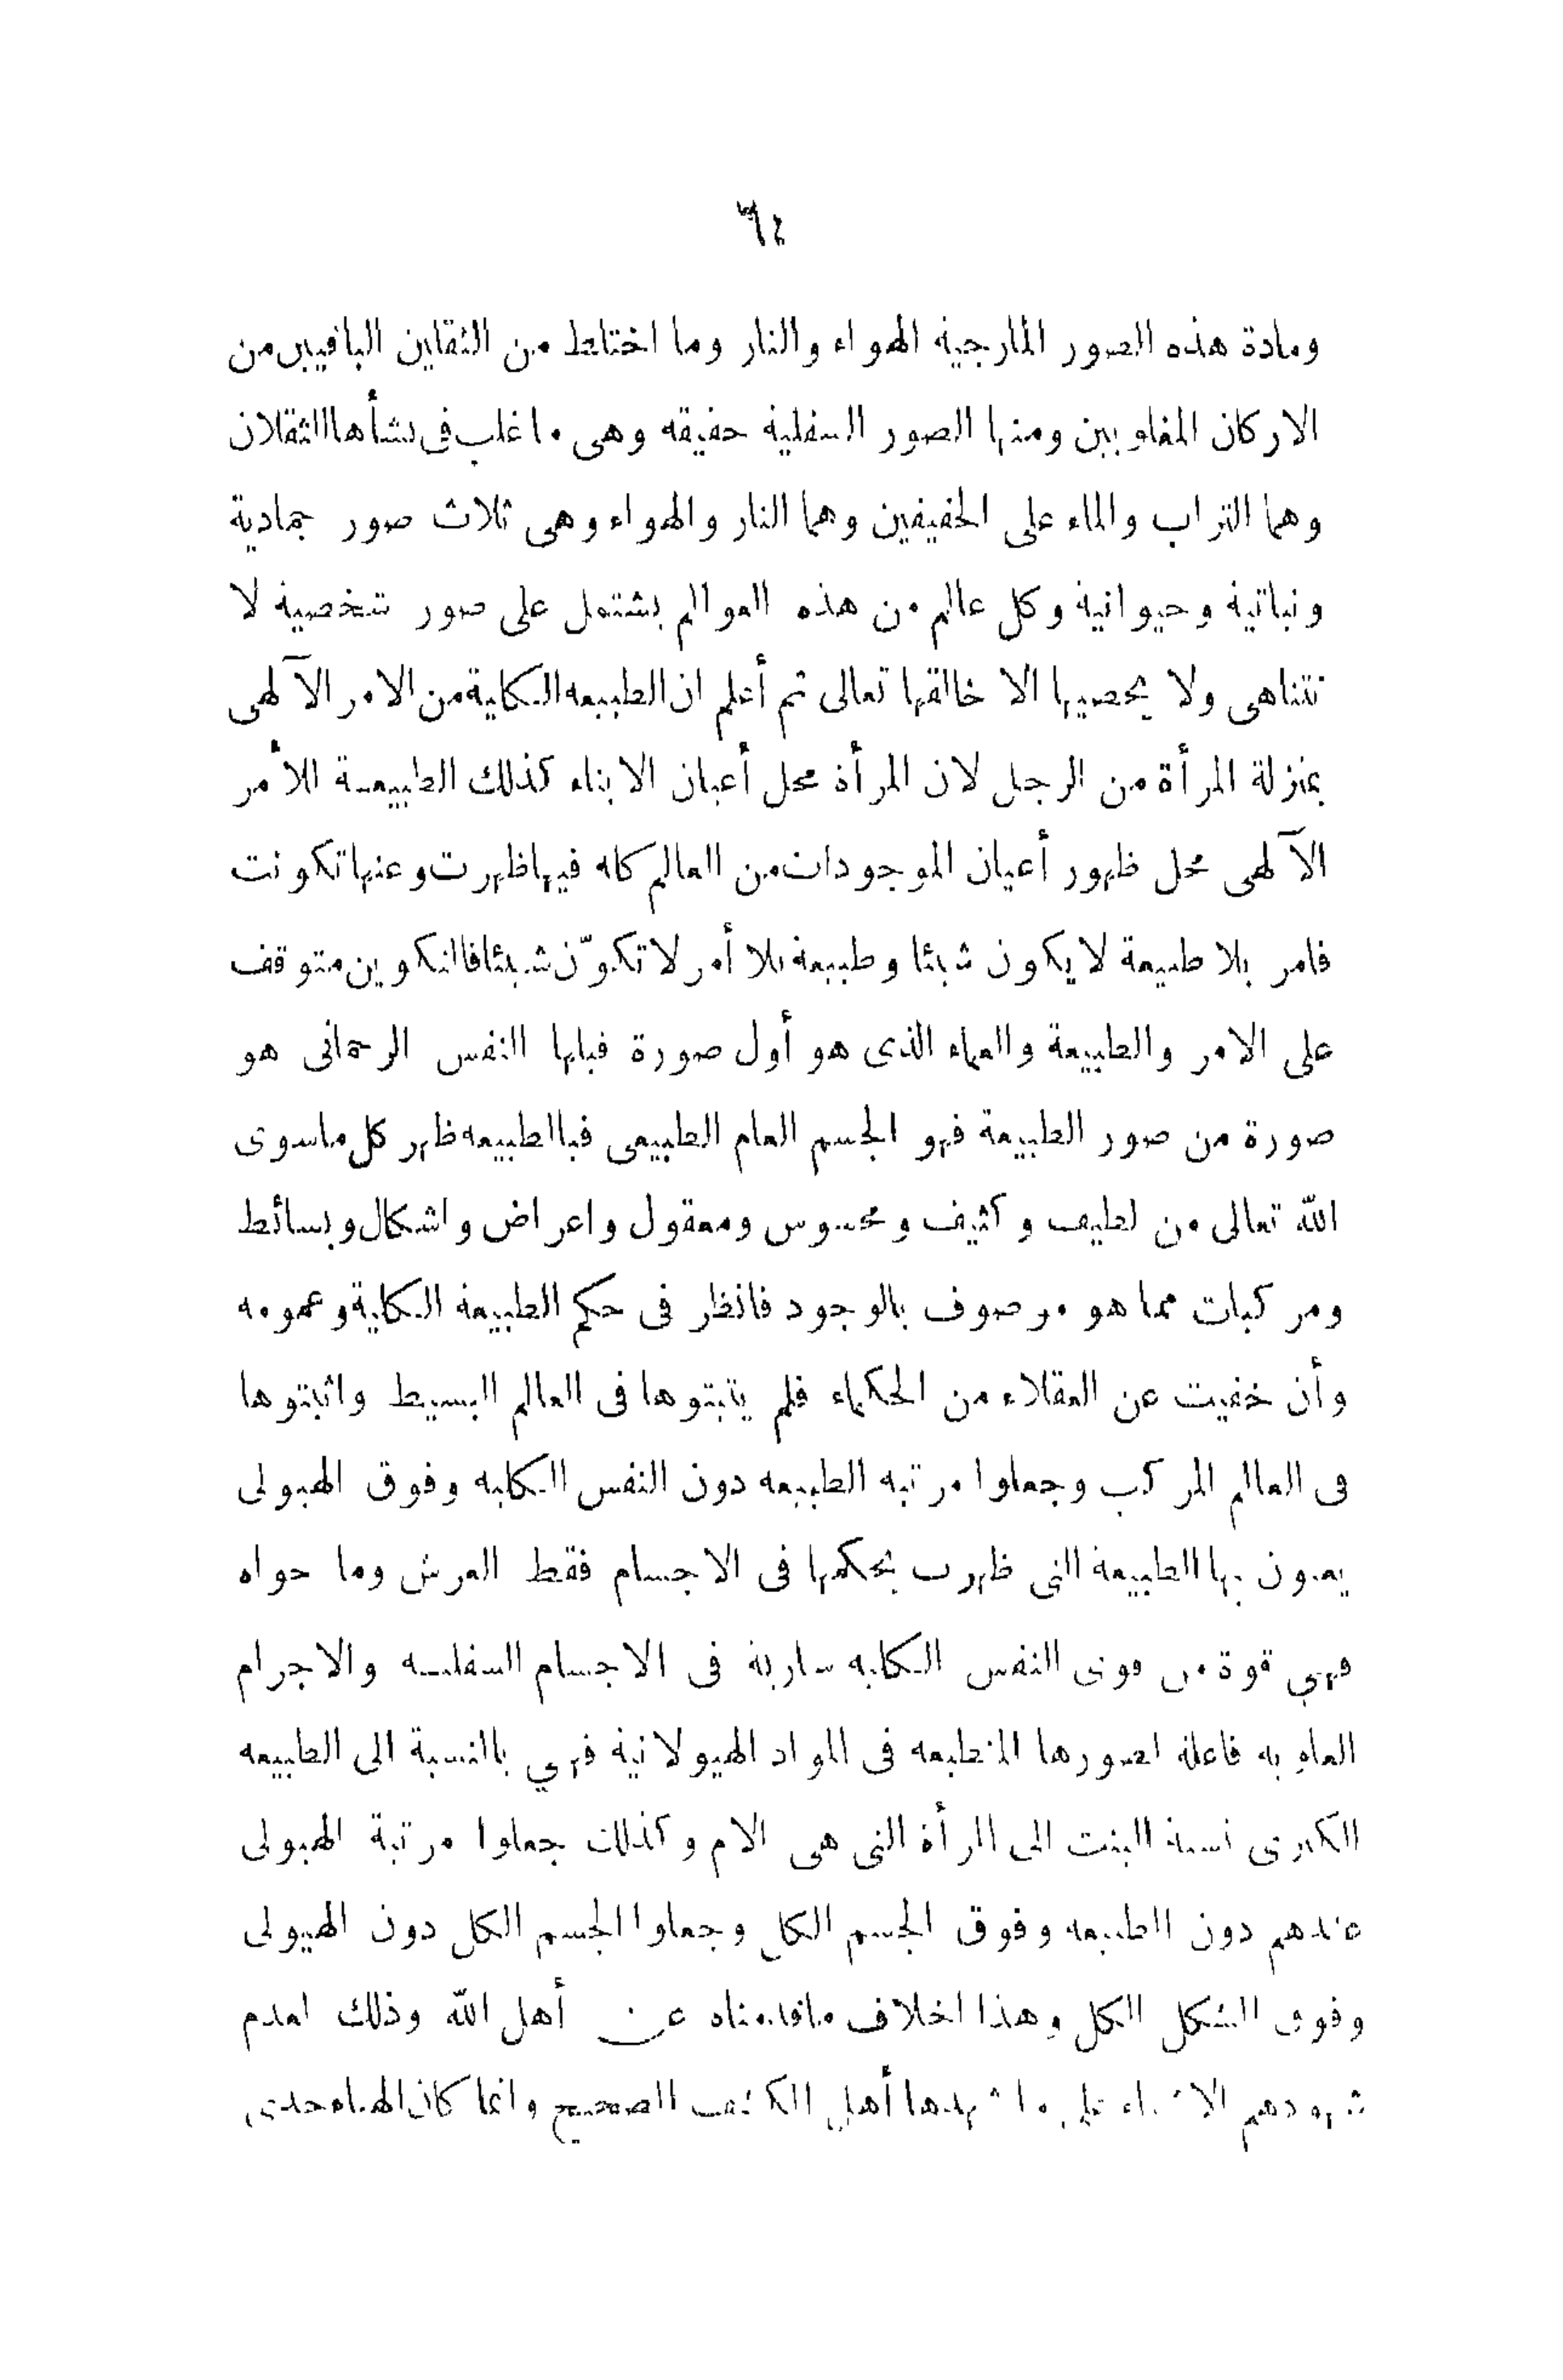 ٦٤
ومادة هذه الصور المارجية الهواء والنار وما اختلط من الثقلين الباقيين من
الاركان المغلوبين ومنها الصور السفلية حقيقه وهى ما غلب فى نشأها الثقلان
وهما التراب والماء على الخفيفين وهما النار والهواء وهى ثلاث صور جمادية
ونباتية وحيوانية وكل عالم من هذه العوالم يشتمل على صور شخصية لا
تتناهى ولا يحصيها الا خالقها تعالى ثم أعلم ان الطبيعه الكلية من الامر الآلهى
بمنزلة المرأة من الرجل لان المرأة محل أعيان الابناء كذلك الطبيعة للأمر
الآلهى محل ظهور أعيان الموجودات من العالم كله فيها ظهرت وعنها تكونت
فامر بلا طبيعة لا يكون شيئا وطبيعة بلا أمر لا تكوّن شيئا فالتكوين متوقف
على الامر والطبيعة والعماء الذى هو أول صورة قبلها النفس الرحمانى هو
صورة من صور الطبيعة فهو الجسم العام الطبيعى فبالطبيعه ظهر كل ماسوى
الله تعالى من لطيف وكثيف ومحسوس ومعقول واعراض واشكال وبسائط
ومركبات مما هو موصوف بالوجود فانظر فى حكم الطبيعة الكلية وعمومه
وأن خفيت عن العقلاء من الحكماء فلم يثبتوها فى العالم البسيط واثبتوها
فى العالم المركب وجعلوا مرتبه الطبيعه دون النفس الكليه وفوق الهيولى
يعنون بها الطبيعة التى ظهرت بحكمها فى الاجسام فقط العرش وما حواه
فهي قوة من قوى النفس الكليه سارية فى الاجسام السفليه والاجرام
العلويه فاعلة لصورها المنطبعه فى المواد الهيولانية فهي بالنسبة الى الطبيعه
الكبرى نسبة البنت الى المرأة التى هى الام وكذلك جعلوا مرتبة الهيولى
عندهم دون الطبيعه وفوق الجسم الكل وجعلوا الجسم الكل دون الهيولى
وفوق الشكل الكل وهذا اخلاف ماقدمناه عن أهل الله وذلك لعدم
شهودهم الاشياء على ما شهدها أهل الكشف الصحيح وانما كان الهباء